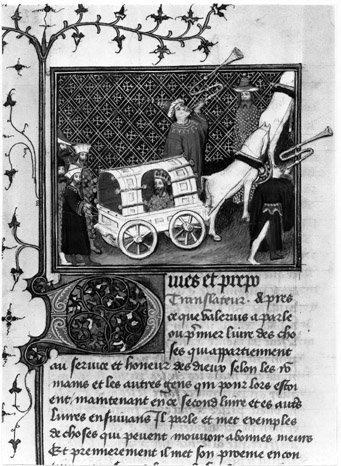 Diues et prepo
Translateur. Apres
ce que valerius a parle
ou premier liure des cho
ses qui appartiennent
au seruice et honneur des dieux selon les ro
mains et les autres gens qui pour lors estoi
ent/ maintenant en ce second liure et es autres
liures ensuiuans Il parle et met exemples
de choses qui peuent mouuoir a bonnes meurs
Et premierement il met son proeme en con